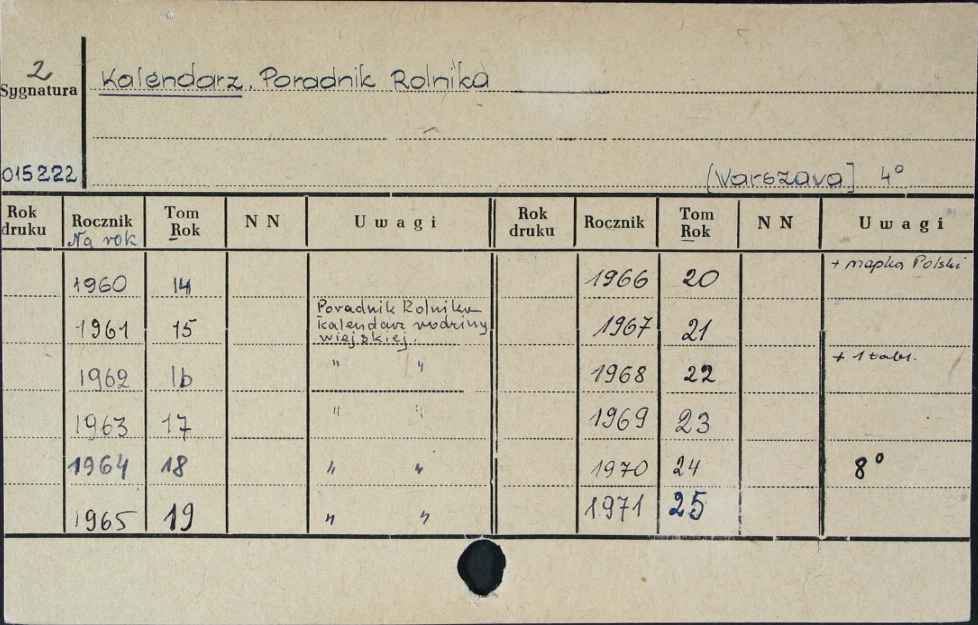 2
Sygnatura
Kalendarz, Poradnik Rolnika
015222
[Warszawa] 4°
Rok druku Rocznik Tom Rok NN Uwagi Rok druku Rocznik Tom Rok NN Uwagi
Na rok
+ mapka Polski
1960 14 1966 20
Poradnik Rolnika
kalendarz rodziny
wiejskiej.
1961 15 1967 21
+ 1 tabl.
1962 16 " " 1968 22
1963 17 " " 1969 23
1964 18 " " 1970 24 8°
1965 19 " " 1971 25